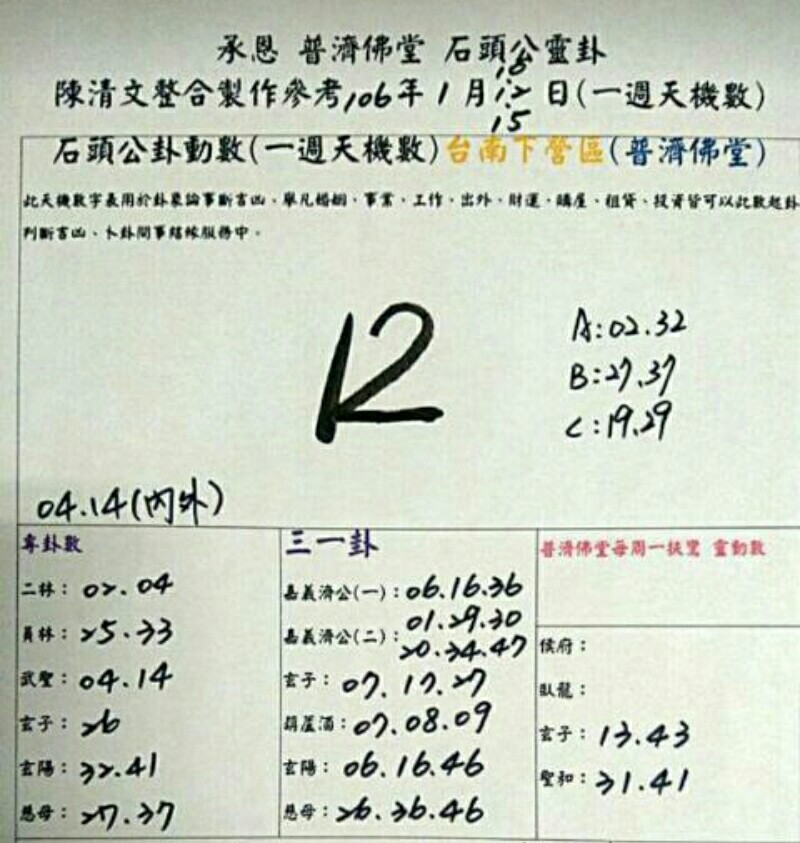 承恩 普濟佛堂 石頭公靈卦
10
陳清文整合製作參考106年1月12日(一週天機數)
15
石頭公卦動數(一週天機數)台南下營區(普濟佛堂)
此天機數字義用於卦象論事斷吉凶、舉凡婚姻、事業、工作、出外、財運、購屋、租貸、投資皆可以此數起卦
判斷吉凶、卜卦問事結緣服務中。
12
A:02.32
B:27.37
C:19.29
04.14(內外)
專卦數
二林:02.04
員林:25.33
武聖:04.14
玄子:26
玄陽:32.41
慈母:27.37
三一卦
嘉義濟公(一):06.16.36
01.29.30
嘉義濟公(二):20.34.47
玄子:07.17.27
葫蘆酒:07.08.09
玄陽:06.16.46
慈母:26.36.46
普濟佛堂每周一扶鸞 靈動數
侯府:
臥龍:
玄子:13.43
聖和:31.41